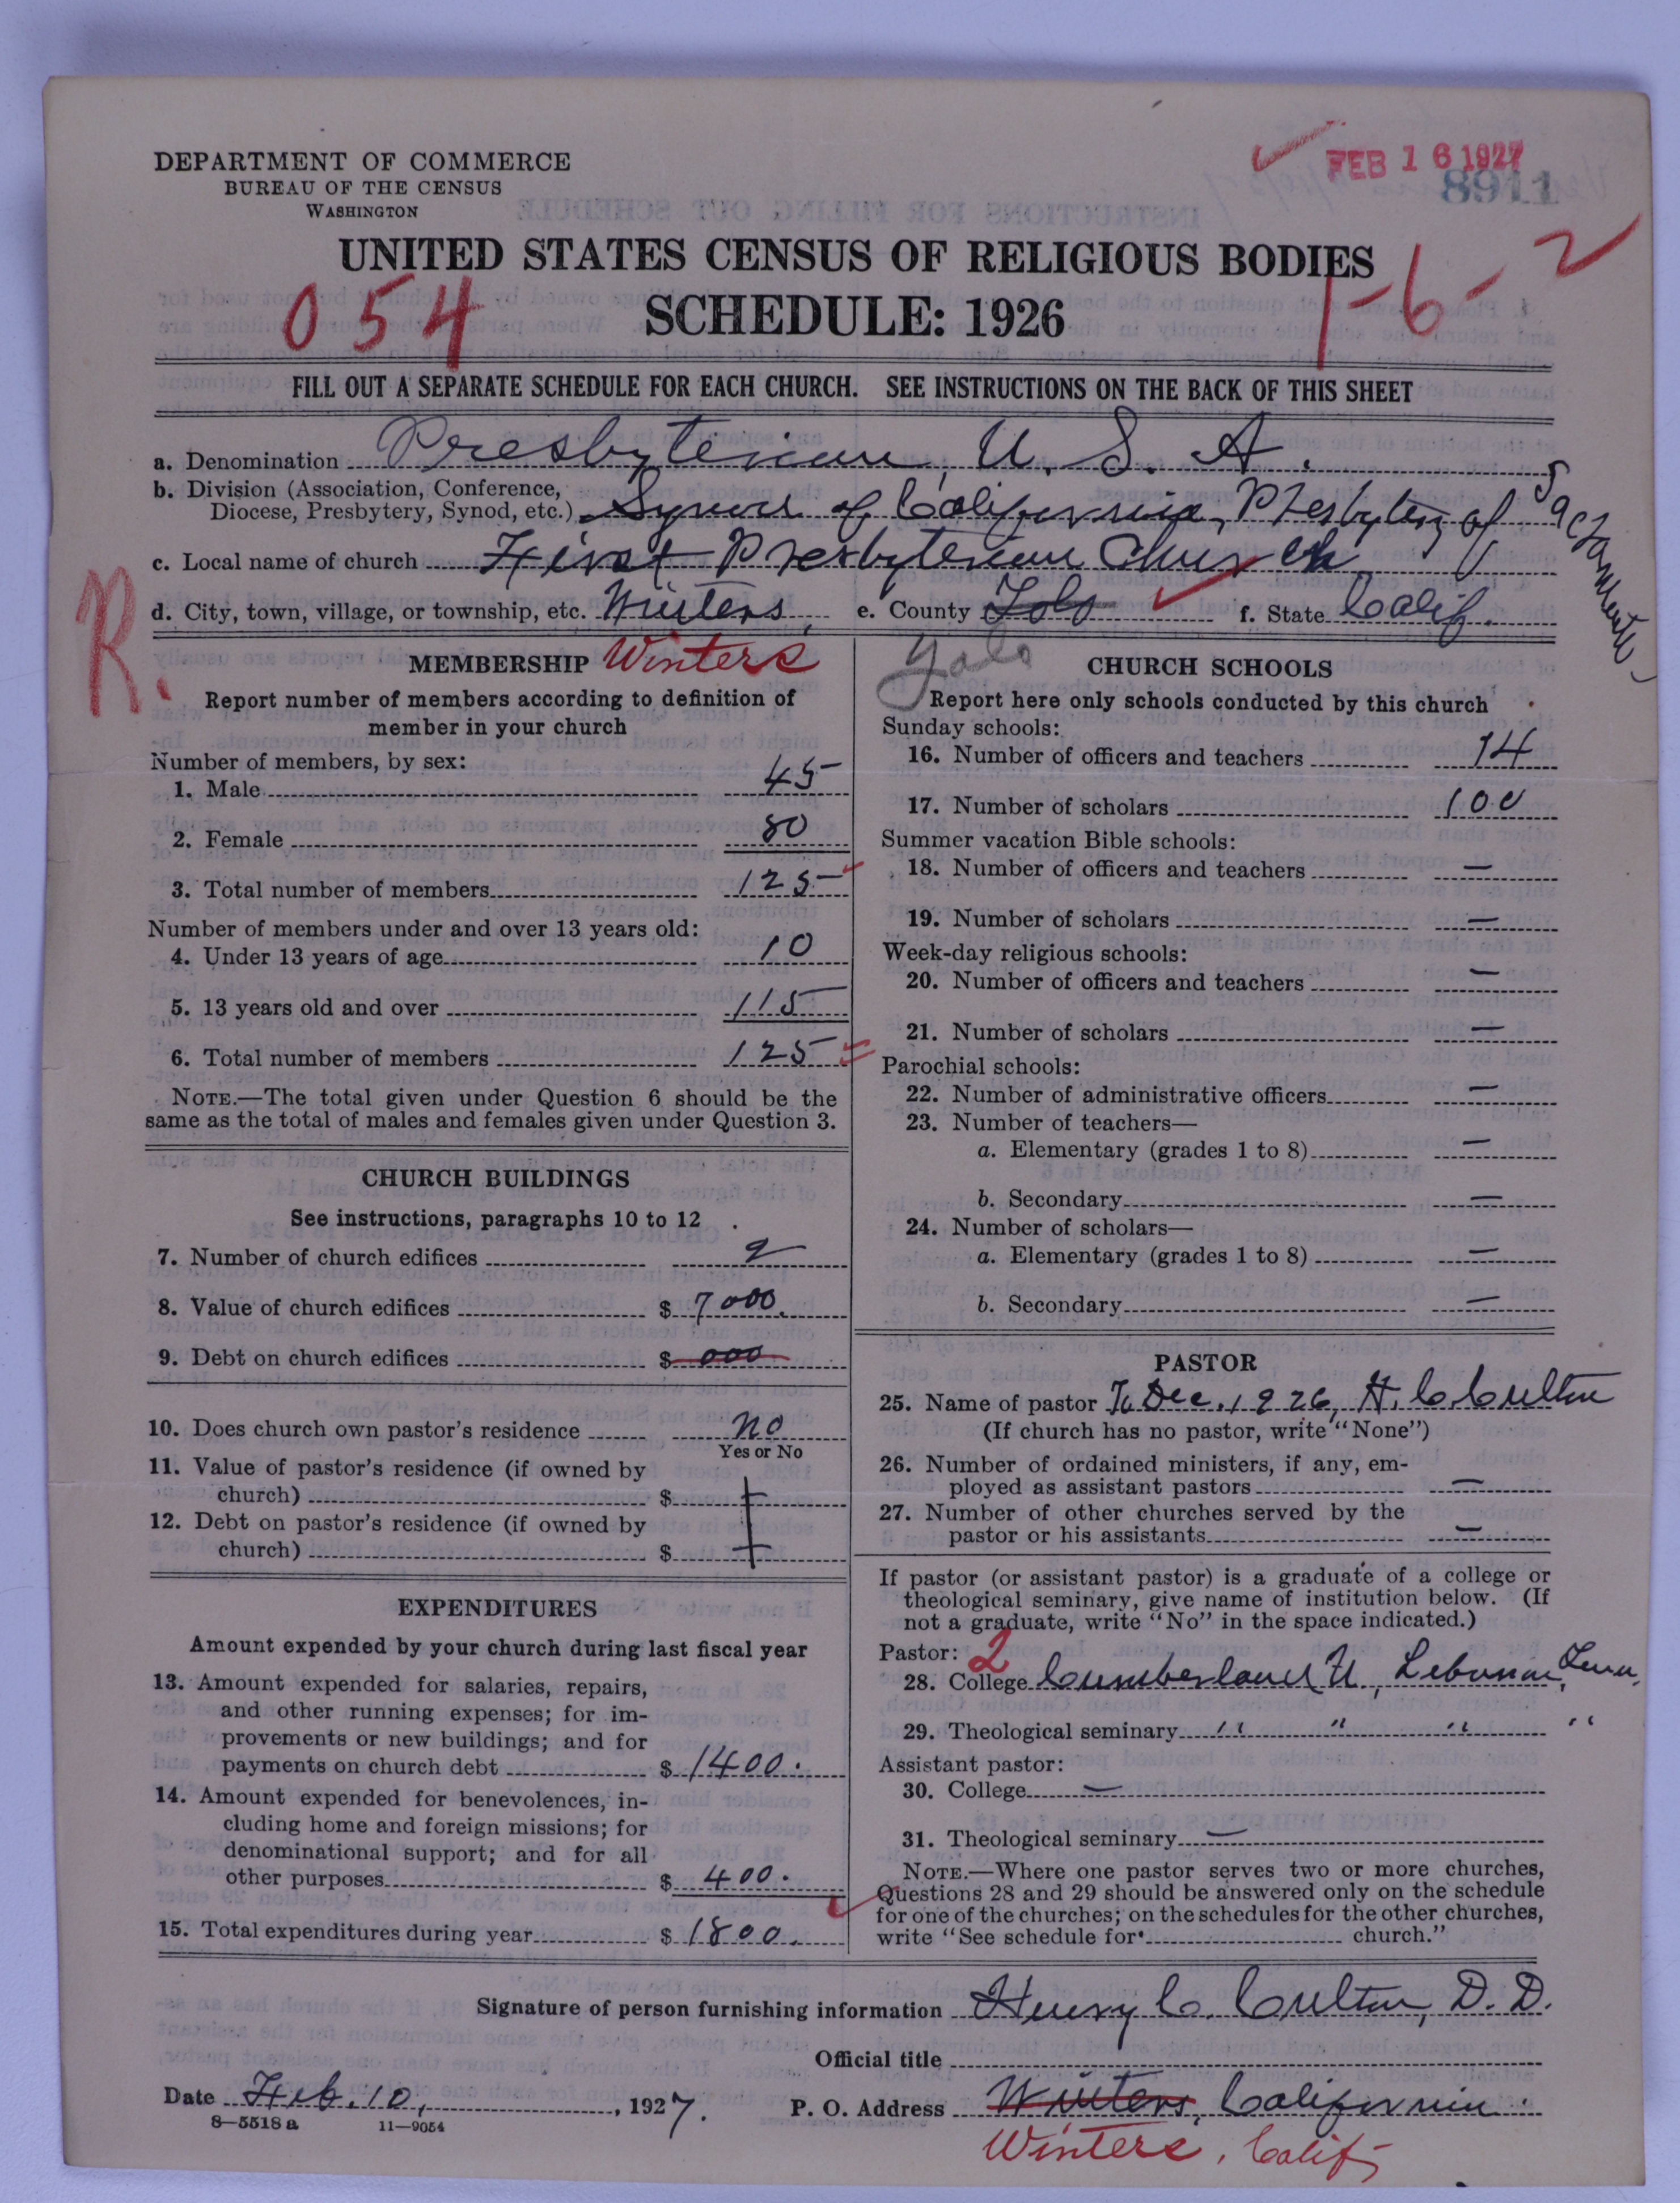 DEPARTMENT OF COMMERCE
BUREAU OF THE CENSUS
WASHINGTON
FEB 16 1927
8911
UNITED STATES CENSUS OF RELIGIOUS BODIES
SCHEDULE: 1926
054
1-6-2
FILL OUT A SEPARATE SCHEDULE FOR EACH CHURCH. SEE INSTRUCTIONS ON THE BACK OF THIS SHEET
a. Denomination Presbyterian, U. S. A.
b. Division (Association, Conference,
Diocese, Presbytery, Synod, etc.) Synod of California, Presbytery of Sacramento
c. Local name of church First Presbyterian Church
d. City, town, village, or township, etc. Winters, e. County Yolo f. State Calif.
R.
MEMBERSHIP Winters
Report number of members according to definition of
member in your church
Number of members, by sex:
1. Male 45
2. Female 80
3. Total number of members 125
Number of members under and over 13 years old:
4. Under 13 years of age 10
5. 13 years old and over 115
6. Total number of members 125
NOTE.—The total given under Question 6 should be the
same as the total of males and females given under Question 3.
CHURCH BUILDINGS
See instructions, paragraphs 10 to 12
7. Number of church edifices 2
8. Value of church edifices $ 7000.
9. Debt on church edifices $ 000
10. Does church own pastor's residence no
Yes or No
11. Value of pastor's residence (if owned by
church) $
12. Debt on pastor's residence (if owned by
church) $
EXPENDITURES
Amount expended by your church during last fiscal year
13. Amount expended for salaries, repairs,
and other running expenses; for im-
provements or new buildings; and for
payments on church debt $ 1400.
14. Amount expended for benevolences, in-
cluding home and foreign missions; for
denominational support; and for all
other purposes $ 400.
15. Total expenditures during year $ 1800.
Yolo
CHURCH SCHOOLS
Report here only schools conducted by this church
Sunday schools:
16. Number of officers and teachers 14
17. Number of scholars 100
Summer vacation Bible schools:
18. Number of officers and teachers —
19. Number of scholars —
Week-day religious schools:
20. Number of officers and teachers —
21. Number of scholars —
Parochial schools:
22. Number of administrative officers —
23. Number of teachers—
a. Elementary (grades 1 to 8) —
b. Secondary —
24. Number of scholars—
a. Elementary (grades 1 to 8) —
b. Secondary —
PASTOR
25. Name of pastor To Dec. 1926, H. C. Culton
(If church has no pastor, write "None")
26. Number of ordained ministers, if any, em-
ployed as assistant pastors —
27. Number of other churches served by the
pastor or his assistants —
If pastor (or assistant pastor) is a graduate of a college or
theological seminary, give name of institution below. (If
not a graduate, write "No" in the space indicated.)
Pastor: 2
28. College Cumberland U, Lebanon, Tenn.
29. Theological seminary " " " "
Assistant pastor:
30. College —
31. Theological seminary —
NOTE.—Where one pastor serves two or more churches,
Questions 28 and 29 should be answered only on the schedule
for one of the churches; on the schedules for the other churches,
write "See schedule for church."
Signature of person furnishing information Henry C. Culton, D. D.
Official title
Date Feb. 10, 1927. P. O. Address Winters, California
8—5518 a 11—9054
Winters, Calif